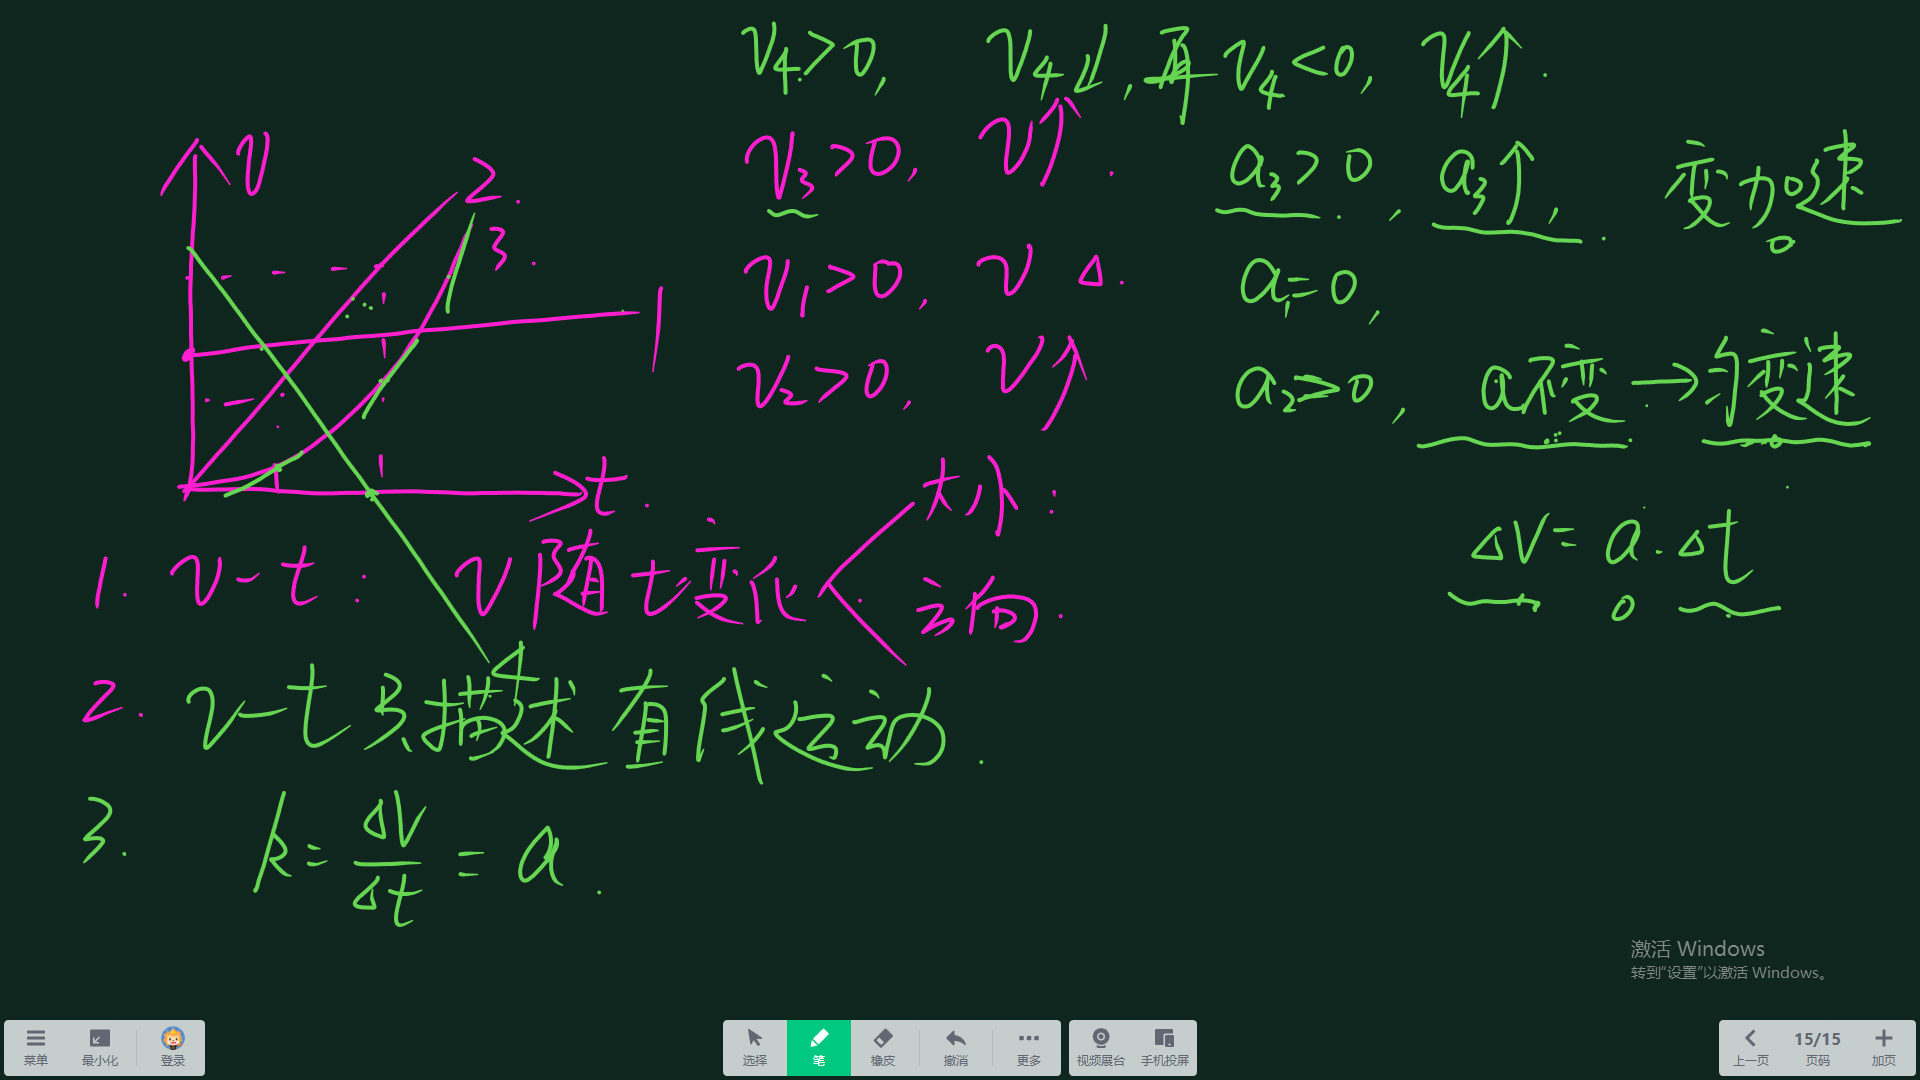 v₄>0, v₄↓, 再 v₄<0, v₄↑.
v₃>0, v↑. a₃>0, a₃↑, 变加速
v₁>0, v △. a₁=0,
v₂>0, v↑ a₂>0, a不变→匀变速
v
2.
3.
1
t.
4
ΔV=a.Δt
1. v-t: v随t变化 大小:
方向.
2. v-t只描述直线运动.
3. k=ΔV/Δt=a.
激活 Windows
转到“设置”以激活 Windows。
菜单 最小化 登录 选择 笔 橡皮 撤消 更多 视频展台 手机投屏 上一页 15/15 页码 加页